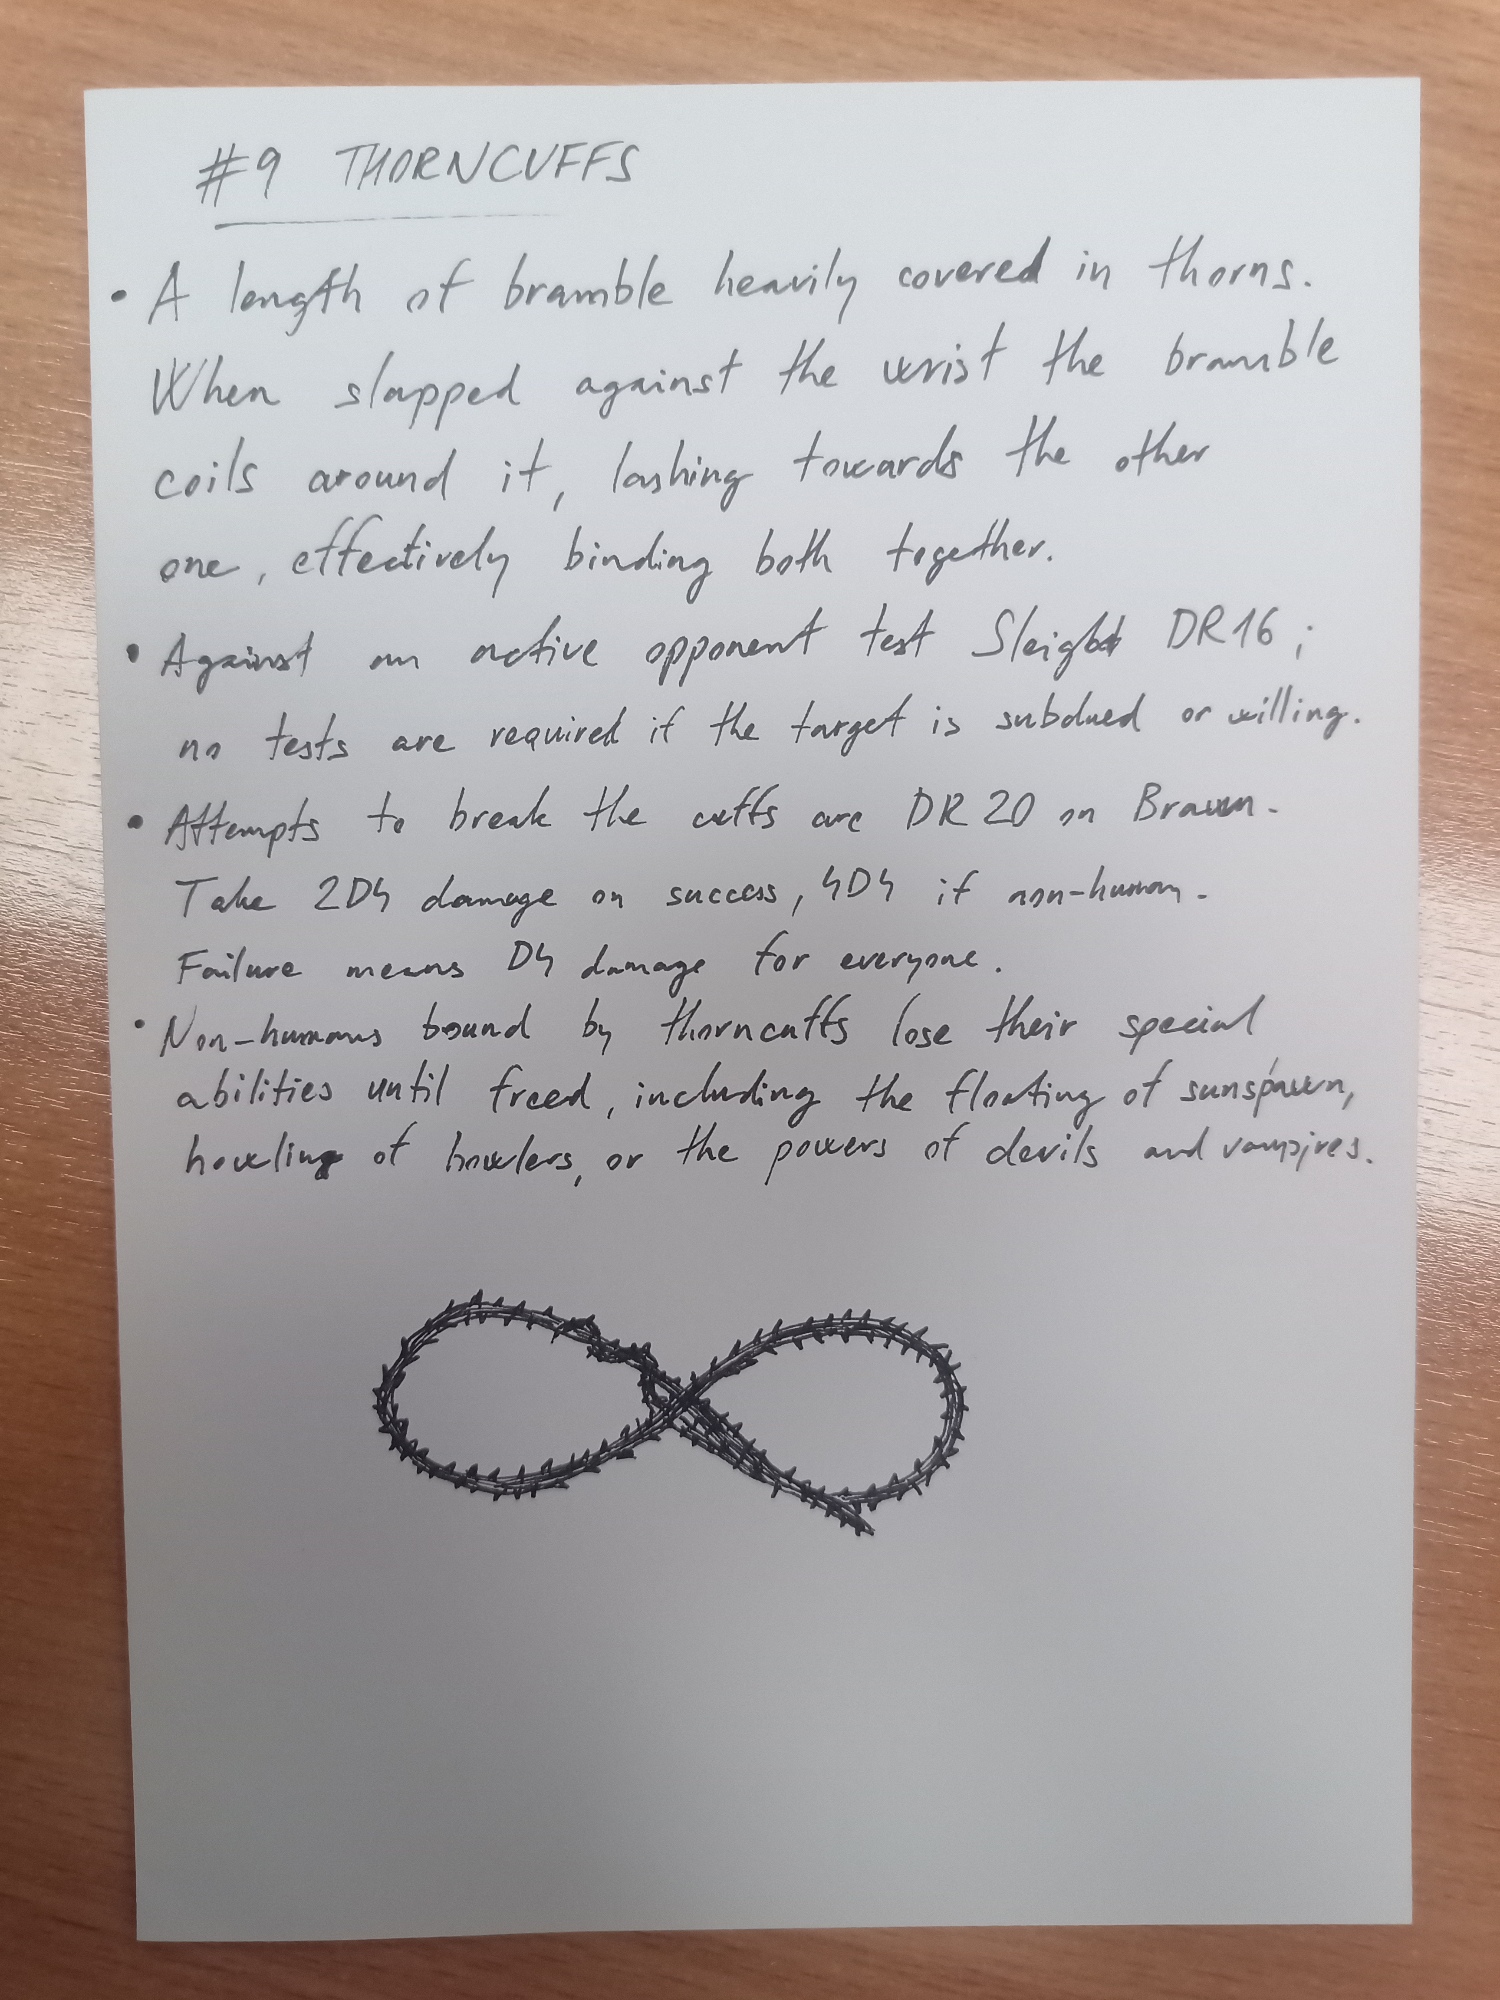 #9 THORNCUFFS
• A length of bramble heavily covered in thorns.
When slapped against the wrist the bramble
coils around it, lashing towards the other
one, effectively binding both together.
• Against an active opponent test Sleight DR16;
no tests are required if the target is subdued or willing.
• Attempts to break the cuffs are DR 20 on Brawn.
Take 2D4 damage on success, 4D4 if non-human.
Failure means D4 damage for everyone.
• Non-humans bound by thorncuffs lose their special
abilities until freed, including the floating of sunspawn,
howling of howlers, or the powers of devils and vampires.